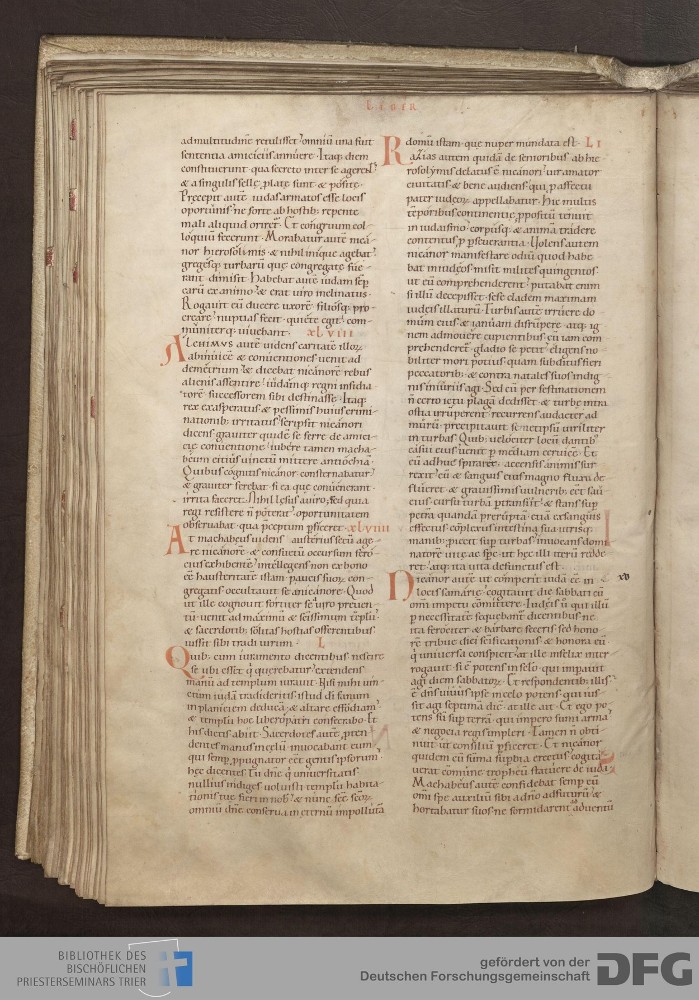 LIBER
ad multitudinē retulisset omniū una fuit
sententia amiciciis annuere · Itaq; diem
constituerunt qua secreto inter se agerent
& a singulis selle plate sunt & posite ·
Precepit autē iudas armatos esse locis
oportunis ne forte ab hostib; repente
mali aliquid oriret̃ · Et congruum col-
loquiū fecerunt · Morabatur autē nica-
nor hierosolimis · & nihil inique agebat ·
gregesq; turbarū que congregate fue-
rant dimisit · Habebat autē iudam semp̄
carū ex animo · & erat uiro inclinatus ·
Rogauit eū ducere uxorē · filiosq; pro-
creare · nuptias fecit · quiete egit · com-
muniterq; uiuebant · xlviii
Alchimus autē uidens caritatē illoꝝ
ab inuicē & conuentiones uenit ad
demetrium & dicebat nicanorē rebus
alienis assentire · iudamq; regni insidia-
torē successorem sibi destinasse · Itaq;
rex exasperatus & pessimis huius crimi-
nationib; irritatus scripsit nicanori
dicens grauiter quidē se ferre de amici-
cie conuentione · iubere tamen macha-
beum citius uinctū mittere antiochiā ·
Quibus cognitis nicanor consternabatur
& grauiter ferebat si ea que conuenerant
irrita faceret · nihil lesus a uiro · sed quia
regi resistere n̄ poterat oportunitatem
obseruabat qua p̄ceptum p̄ficeret · xlviiii
At machabeus uidens austerius secū age-
re nicanorē · & consuetū occursum fero-
cius exhibente intellegens non ex bono
eē hausteritatē istam · paucis suoꝝ con-
gregatis occultauit se a nicanore · Quod
ut ille cognouit fortiter se a uiro preuen-
tū uenit ad maximū & sc̄issimum templū ·
& sacerdotib; solitas hostias offerentibus
iussit sibi tradi uirum · L
Quib; cum iuramento dicentibus nescire
se ubi esset q̄ querebatur extendens
manū ad templum iurauit · Nisi mihi uin-
ctum iudā tradideritis istud dī fanum
in planiciem deducā · & altare effodiam
& templū hoc libero patri consecrabo · Et
his dictis abiit · Sacerdotes autē p̄ten-
dentes manus in celū inuocabant eum
qui semp̄ p̄pugnator eēt gentis ipsorum ·
hec dicentes · Tu dn̄e q̄ uniuersitatis
nullius indiges uoluisti templū habita-
tionis tue fieri in nob · & nunc sc̄e sc̄oꝝ
omniū dn̄e conserua in eternū impollutā
domū istam · que nuper mundata est · LI
Raxias autem quidā de senioribus ab hie-
rosolymis delatus ē nicanori uir amator
ciuitatis & bene audiens qui p̄ affectu
pater iudeoꝝ appellabatur · Hic multis
tēporibus continentie p̄positū tenuit
in iudaismo · corpusq; & animā tradere
contentus p̄ p̄seuerantia · Uolens autem
nicanor manifestare odiū quod habe-
bat in iudeos misit milites quingentos ·
ut eū comprehenderent · putabat enim
si illū decepisset · sese cladem maximam
iudeis illaturū · Turbis autē irruere do-
mum eius & ianuam disrupere · atq; ig-
nem admouere cupientibus cū iam com-
prehenderet̃ gladio se petit · eligens no-
biliter mori potius quam subditus fieri
peccatorib; & contra natales suos indig-
nis iniuriis agi · Sed cū per festinationem
n̄ certo ictu plagā dedisset & turbe intra
ostia irruperent · recurrens audacter ad
murū · precipitauit semetipsū uiriliter
in turbas · Quib; uelociter locū dantib;
casui eius uenit p̄ mediam ceruicē · Et
cū adhuc spiraret · accensis animis sur-
rexit · cū & sanguis eius magno fluxu de-
flueret & grauissimis uulnerib; eēt sau-
cius · cursu turbā p̄transiit · & stans sup̄
petrā quandā preruptā · & iā exsanguis
effectus cōplexus intestina sua utrisq;
manib; p̄iecit sup̄ turbas inuocans domi-
natorē uite ac sp̄s · ut hec illi iterū redde-
ret · atq; ita uita defunctus est · xv
Nicanor autē ut comperit iudā eē in
locis samarie · cogitauit die sabbati cū
om̄i impetu cōmittere · Iudeis ū qui illū
p̄ necessitatē sequebant̃ dicentibus ne
ita ferociter & barbare feceris · sed hono-
rē tribue diei scificationis & honora eū
q̄ uniuersa conspicit · at ille infelix inter-
rogauit · si ē potens in celo qui impauit
agi diem sabbatoꝝ · Et respondentib; illis
ē dn̄s uiuus ipse in celo potens · qui ius-
sit agi septimā diē · at ille ait · Et ego po-
tens sū sup̄ terrā · qui impero sumi arma
& negocia regis impleri · Tamen n̄ obti-
nuit ut consiliū p̄ficeret · Et nicanor
quidem cū sūma sup̄bia erectus cogita-
uerat comune tropheū statuere de iuda ·
Machabeus autē confidebat semp̄ cū
om̄i spe auxiliū sibi a dn̄o adfuturū · &
hortabatur suos · ne formidarent aduentū
BIBLIOTHEK DES
BISCHÖFLICHEN
PRIESTERSEMINARS TRIER
gefördert von der
Deutschen Forschungsgemeinschaft
DFG